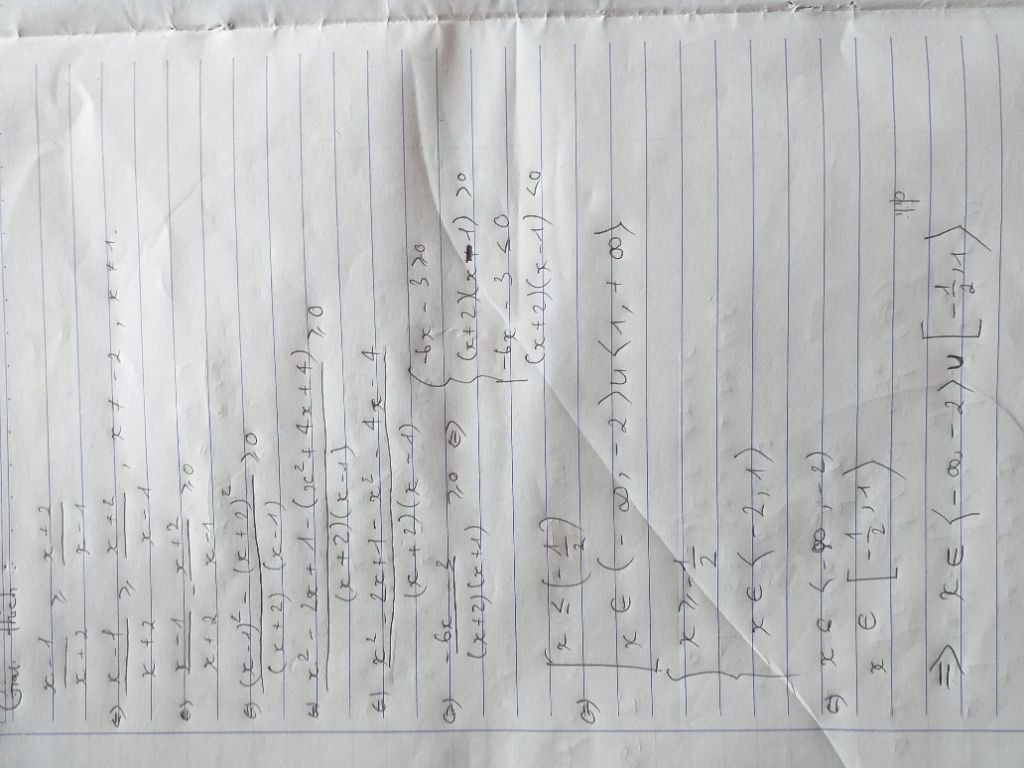 Giải thích:
x-1/x+2 ≥ x+2/x-1
⇔ x-1/x+2 ≥ x+2/x-1, x ≠ -2, x ≠ 1.
⇔ x-1/x+2 - x+2/x-1 ≥ 0
⇔ (x-1)² - (x+2)²/(x+2)(x-1) ≥ 0
⇔ x² - 2x + 1 - (x² + 4x + 4)/(x+2)(x-1) ≥ 0
⇔ x² - 2x + 1 - x² - 4x - 4/(x+2)(x-1)
⇔ -6x - 3/(x+2)(x+1) ≥ 0 ⇔ { -6x - 3 ≥ 0
(x+2)(x-1) > 0
-6x - 3 ≤ 0
(x+2)(x-1) < 0
⇔ [ x ≤ (-1/2)
x ∈ (-∞, -2) ∪ <1, +∞)
{ x ≥ -1/2
x ∈ <-2, 1)
⇔ x ∈ <-∞, -2)
x ∈ [-1/2, 1)
⇒ x ∈ <-∞, -2> ∪ [-1/2, 1>